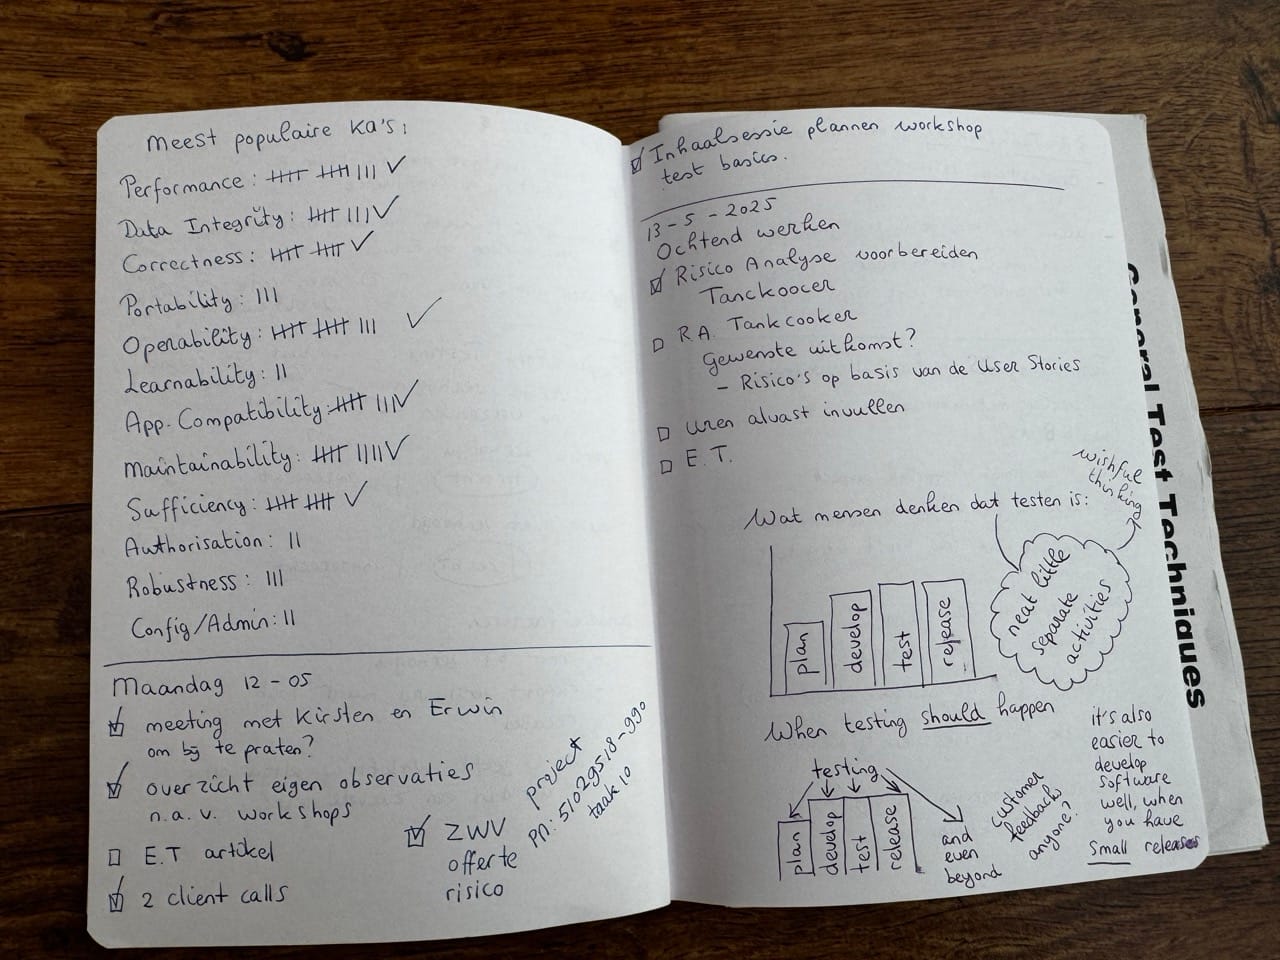 Meest populaire KA's:
Performance: 卌 卌 III ✓
Data Integrity: 卌 III ✓
Correctness: 卌 卌 ✓
Portability: III
Operability: 卌 卌 III ✓
Learnability: II
App. Compatibility: 卌 III ✓
Maintainability: 卌 IIII ✓
Sufficiency: 卌 卌 ✓
Authorisation: II
Robustness: III
Config/Admin: II
Maandag 12-05
☑ meeting met Kirsten en Erwin
om bij te praten?
☑ overzicht eigen observaties
n.a.v. workshops
☐ E.T artikel
☑ 2 client calls
☑ ZWV
offerte
risico
project
PN: 51029518-990
taak 10
☑ Inhaalsessie plannen workshop
test basics.
13-5-2025
Ochtend werken
☑ Risico Analyse voorbereiden
Tanckoocer
☐ R.A. Tankcooker
Gewenste uitkomst?
- Risico's op basis van de User Stories
☐ Uren alvast invullen
☐ E.T.
Wat mensen denken dat testen is:
wishful
thinking
neat little
separate
activities
plan
develop
test
release
When testing should happen
testing
plan
develop
test
release
and
even
beyond
customer
feedback,
anyone?
it's also
easier to
develop
software
well, when
you have
small releases
General Test Techniques